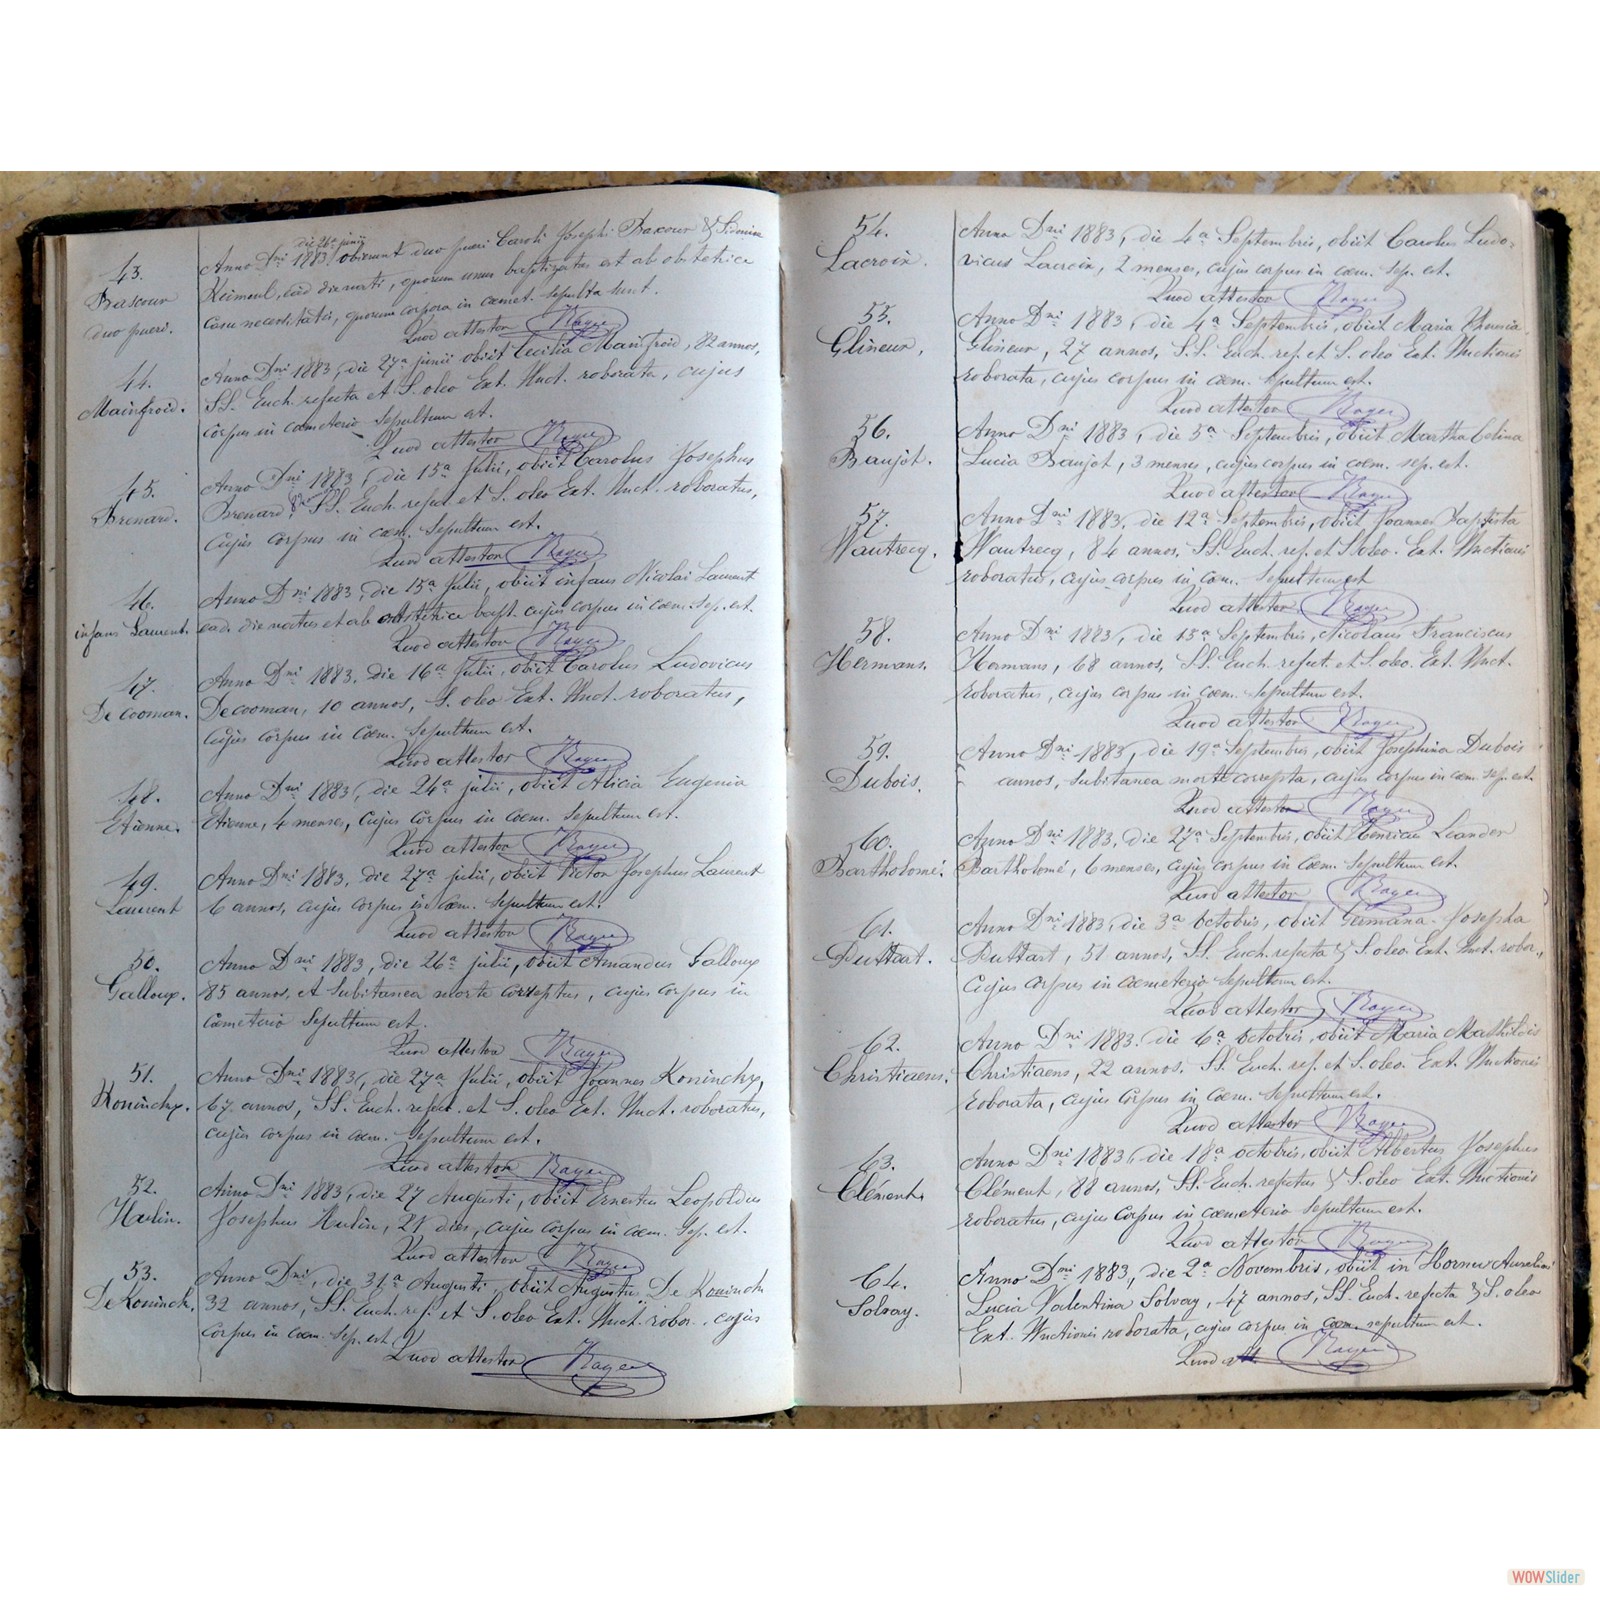 43.
Bascour
duo pueri.
die 26a junii
Anno Dni 1883, obierunt duo pueri Caroli Josephi Baxour & Sidonia
ead die nati, quorum unus baptizatus est ab obstetrice
casu necessitatis, quorum corpora in cœmet. sepulta sunt.
Quod attestor Bayer
44.
Mainfroid.
Anno Dni 1883, die 27a junii obiit Cecilia Mainfroid, 82 annos,
SS. Euch. refecta et S. oleo Ext. Unct. roborata, cujus
corpus in cœmeterio sepultum est.
Quod attestor Bayer
45.
Brenard.
Anno Dni 1883, die 15a Julii, obiit Carolus Josephus
Brenard, SS. Euch. refect. et S. oleo Ext. Unct. roboratus,
cujus corpus in cœm. sepultum est.
Quod attestor Bayer
46.
infans Laurent.
Anno Dni 1883, die 15a Julii, obiit infans Nicolai Laurent
ead. die natus et ab obstetrice bapt. cujus corpus in cœm. sep. est.
Quod attestor Bayer
47.
De cooman.
Anno Dni 1883, die 16a Julii, obiit Carolus Ludovicus
Decooman, 10 annos, S. oleo Ext. Unct. roboratus,
cujus corpus in cœm. sepultum est.
Quod attestor Bayer
48.
Etienne.
Anno Dni 1883, die 24a julii, obiit Alicia Eugenia
Etienne, 4 menses, cujus corpus in cœm. sepultum est.
Quod attestor Bayer
49.
Laurent
Anno Dni 1883, die 27a julii, obiit Victor Josephus Laurent
6 annos, cujus corpus in cœm. sepultum est.
Quod attestor Bayer
50.
Galloux.
Anno Dni 1883, die 26a julii, obiit Amandus Galloux
85 annos, et subitanea morte correptus, cujus corpus in
cœmeterio sepultum est.
Quod attestor Bayer
51.
Koninckx.
Anno Dni 1883, die 27a Julii, obiit Joannes Koninckx,
67 annos, SS. Euch. refect. et S. oleo Ext. Unct. roboratus,
cujus corpus in cœm. sepultum est.
Quod attestor Bayer
52.
Hulin.
Anno Dni 1883, die 27 Augusti, obiit Ernestus Leopoldus
Josephus Hulin, 21 dies, cujus corpus in cœm. sep. est.
Quod attestor Bayer
53.
De Koninck.
Anno Dni, die 31a Augusti, obiit Augustus De Koninck
32 annos, SS. Euch. ref. et S. oleo Ext. Unct. robor. cujus
corpus in cœm. sep. est.
Quod attestor Bayer
54.
Lacroix.
Anno Dni 1883, die 4a Septembris, obiit Carolus Ludo-
vicus Lacroix, 2 menses, cujus corpus in cœm. sep. est.
Quod attestor Bayer
55.
Glineur,
Anno Dni 1883, die 4a Septembris, obiit Maria Theresia
Glineur, 27 annos, S.S. Euch. ref. et S. oleo Ext. Unctionis
roborata, cujus corpus in cœm. sepultum est.
Quod attestor Bayer
56.
Baujot.
Anno Dni 1883, die 5a Septembris, obiit Martha Celina
Lucia Baujot, 3 menses, cujus corpus in cœm. sep. est.
Quod attestor Bayer
57.
Wautrecq.
Anno Dni 1883, die 12a Septembris, obiit Joannes Baptista
Wautrecq, 84 annos, SS. Euch. ref. et S. oleo. Ext. Unctionis
roboratus, cujus corpus in cœm. sepultum est
Quod attestor Bayer
58.
Hermans.
Anno Dni 1883, die 15a Septembris, Nicolaus Franciscus
Hermans, 68 annos, SS. Euch. refect. et S. oleo. Ext. Unct.
roboratus, cujus corpus in cœm. sepultum est.
Quod attestor Bayer
59.
Dubois.
Anno Dni 1883, die 19a Septembris, obiit Josephina Dubois
annos, subitanea morte correpta, cujus corpus in cœm. sep. est.
Quod attestor Bayer
60.
Bartholomé.
Anno Dni 1883, die 27a Septembris, obiit Henricus Leander
Bartholomé, 6 menses, cujus corpus in cœm. sepultum est.
Quod attestor Bayer
61.
Duttart.
Anno Dni 1883, die 3a Octobris, obiit Germana Josepha
Duttart, 51 annos, SS. Euch. refecta & S. oleo Ext. Unct. robor.,
cujus corpus in cœmeterio sepultum est.
Quod attestor Bayer
62.
Christiaens.
Anno Dni 1883, die 6a Octobris, obiit Maria Mathildis
Christiaens, 22 annos, SS. Euch. ref. et S. oleo. Ext. Unctionis
roborata, cujus corpus in cœm. sepultum est.
Quod attestor Bayer
63.
Clément.
Anno Dni 1883, die 18a octobris, obiit Albertus Josephus
Clément, 88 annos, SS. Euch. refectus & S. oleo Ext. Unctionis
roboratus, cujus corpus in cœmeterio sepultum est.
Quod attestor Bayer
64.
Solvay.
Anno Dni 1883, die 2a Novembris, obiit in Hornu Aurelia
Lucia Valentina Solvay, 47 annos, SS. Euch. refecta & S. oleo
Ext. Unctionis roborata, cujus corpus in cœm. sepultum est.
Quod att. Bayer
WOWSlider